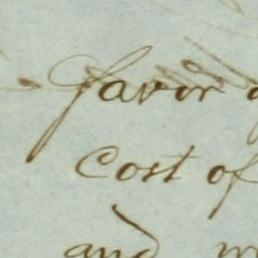 favor
cost of
and